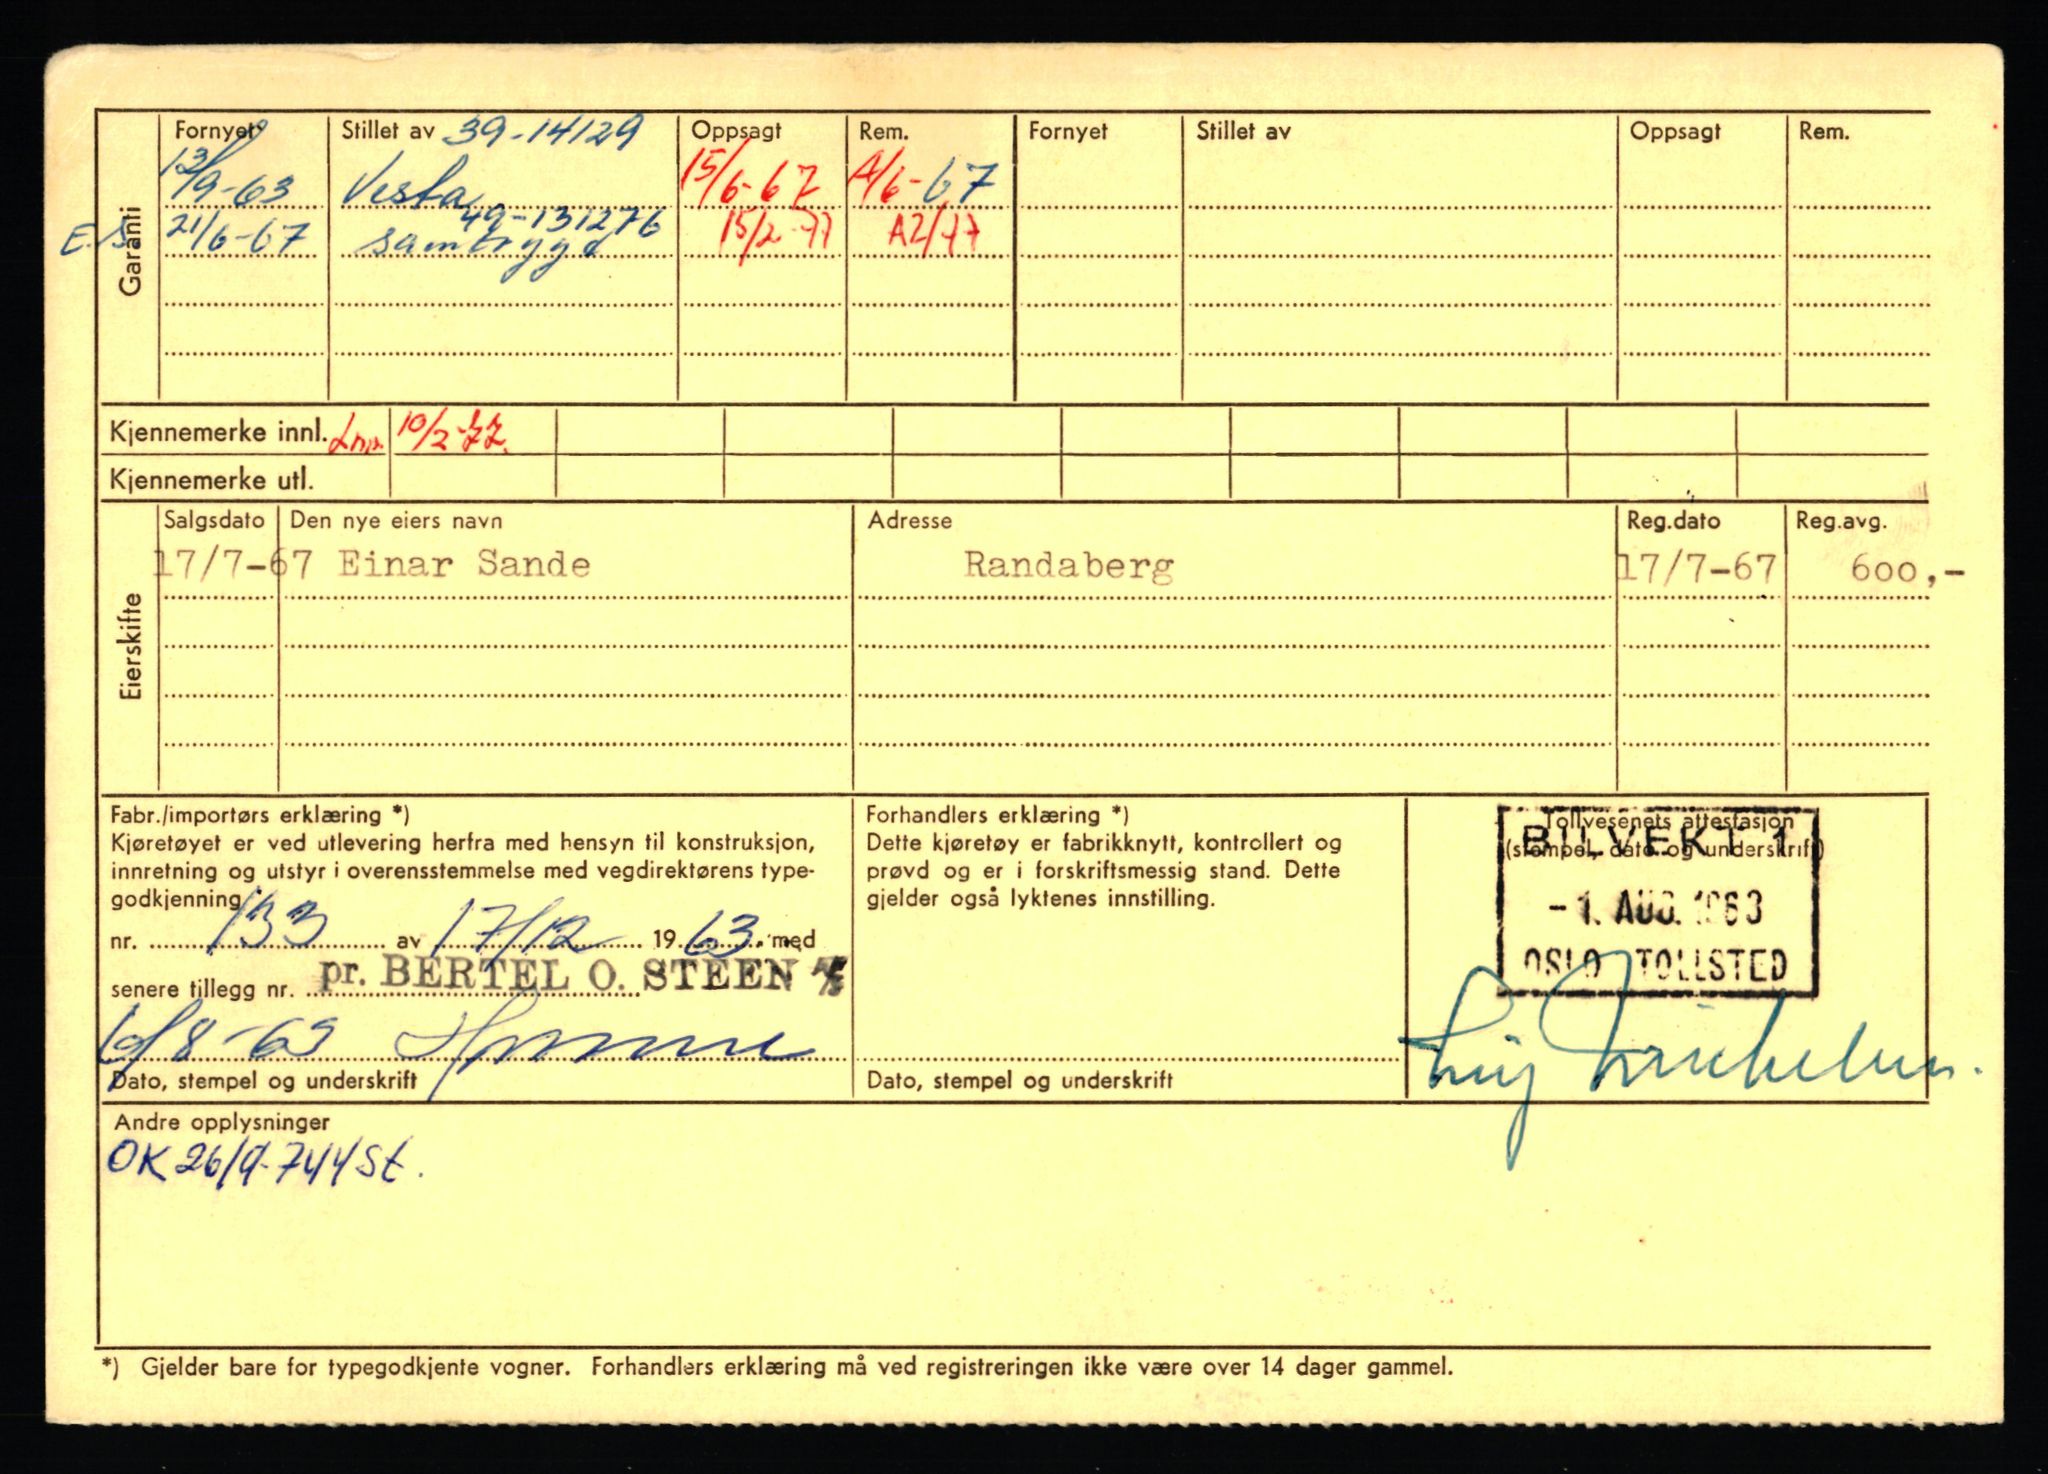 Garanti
Fornyet Stillet av 39-14129 Oppsagt Rem. Fornyet Stillet av Oppsagt Rem.
13/9-63 Vesta 15/6-67 A/6-67
E.S. 21/6-67 49-131276 samtrygd 15/2-77 A2/77
Kjennemerke innl. 10/2-77.
Kjennemerke utl.
Eierskifte
Salgsdato Den nye eiers navn Adresse Reg.dato Reg.avg.
17/7-67 Einar Sande Randaberg 17/7-67 600,-
Fabr./importørs erklæring *)
Kjøretøyet er ved utlevering herfra med hensyn til konstruksjon,
innretning og utstyr i overensstemmelse med vegdirektørens type-
godkjenning
nr. 133 av 17/12 1963. med
senere tillegg nr. pr. BERTEL O. STEEN
6/8-63
Dato, stempel og underskrift
Forhandlers erklæring *)
Dette kjøretøy er fabrikknytt, kontrollert og
prøvd og er i forskriftsmessig stand. Dette
gjelder også lyktenes innstilling.
Dato, stempel og underskrift
Tollvesenets attestasjon
(stempel, dato og underskrift)
BILVEKT 1
-1. AUG. 1963
OSLO TOLLSTED
Andre opplysninger
OK 26/9-744 St.
*) Gjelder bare for typegodkjente vogner. Forhandlers erklæring må ved registreringen ikke være over 14 dager gammel.